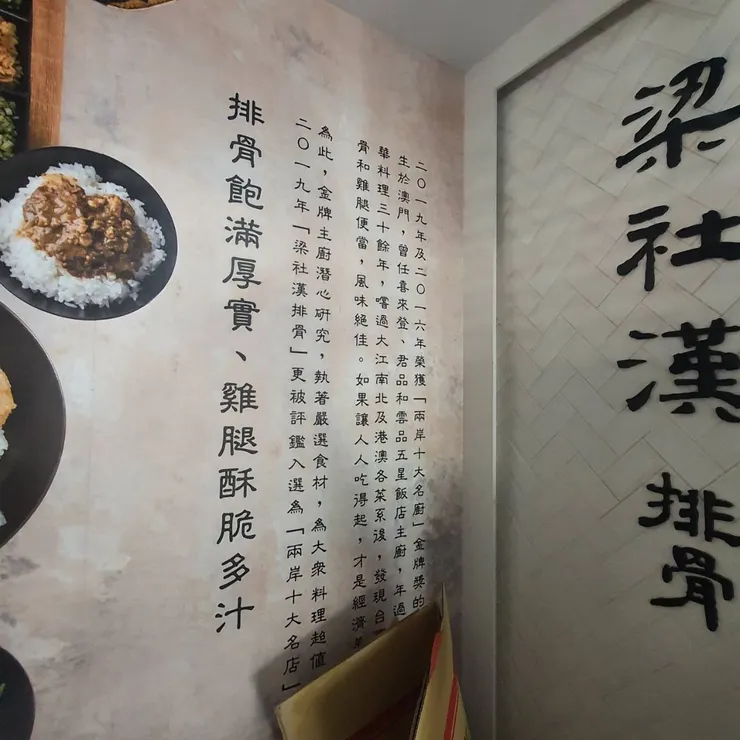 梁社漢排骨
二〇一九年及二〇一六年榮獲「兩岸十大名廚」金牌獎的
生於澳門，曾任喜來登、君品和雲品五星飯店主廚，年過
華料理三十餘年，嚐過大江南北及港澳各菜系後，發現台
骨和雞腿便當，風味絕佳。如果讓人人吃得起，才是經濟
為此，金牌主廚潛心研究，執著嚴選食材，為大眾料理超值
二〇一九年「梁社漢排骨」更被評鑑入選為「兩岸十大名店」
排骨飽滿厚實、雞腿酥脆多汁